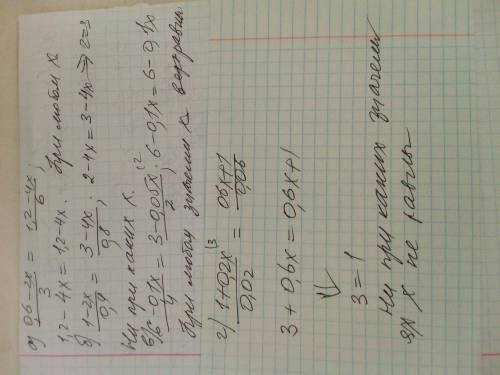 а) 0,6-2x/3 = 1,2-4x/6;
1,2-4x = 1,2-4x. При любом x
б) 1-2x/0,4 = 3-4x/0,8; 2-4x = 3-4x → 2=3
Ни при каких x.
в) 6-0,1x/4 = 3-0,05x/2; 6-0,1x = 6-0,1x
При любом значении x
г) 1+0,2x/0,02 = 0,6x+1/0,06
3+0,6x = 0,6x+1
⇓
3=1
Ни при каких значени
ях x не равны